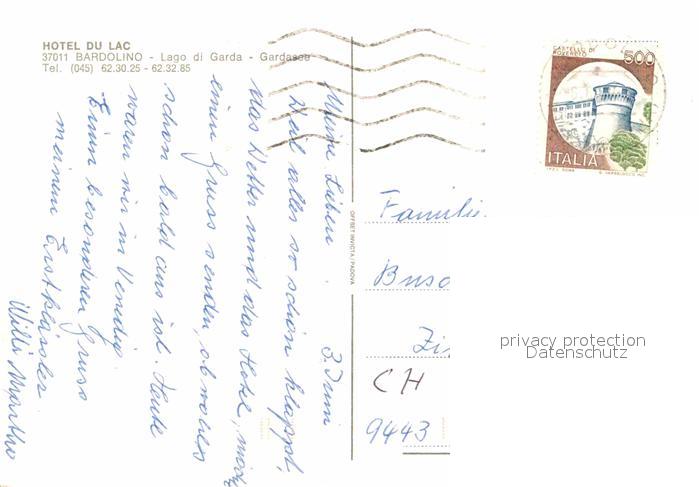 HOTEL DU LAC
37011 BARDOLINO - Lago di Garda - Gardasee
Tel. (045) 62.30.25 - 62.32.85
Meine Lieben 3. Juni
Weil alles so schön klappt,
das Wetter und das Hotel, möchte
einen Gruss senden, ob wohl es
schon bald aus ist. Heute
waren wir in Venedig.
Einen besonderen Gruss
meinem Erstklässler
Willi Martha
OFFSET INVICTA / PADOVA
CASTELLO DI
ROVERETO
500
ITALIA
I.P.Z.S. ROMA
Familie
Busc
Zi
CH
9443
privacy protection
Datenschutz